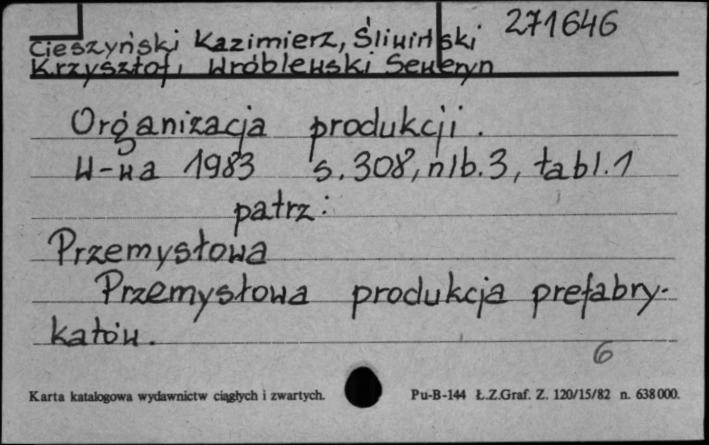 271646
Cieszyński Kazimierz, Śliwiński
Krzysztof, Wróblewski Seweryn
Organizacja produkcji.
W-wa 1983 s. 308, nlb. 3, tabl. 1
patrz:
Przemysłowa
Przemysłowa produkcja prefabry-
katów.
6
Karta katalogowa wydawnictw ciągłych i zwartych. Pu-B-144 Ł.Z.Graf. Z. 120/15/82 n. 638000.